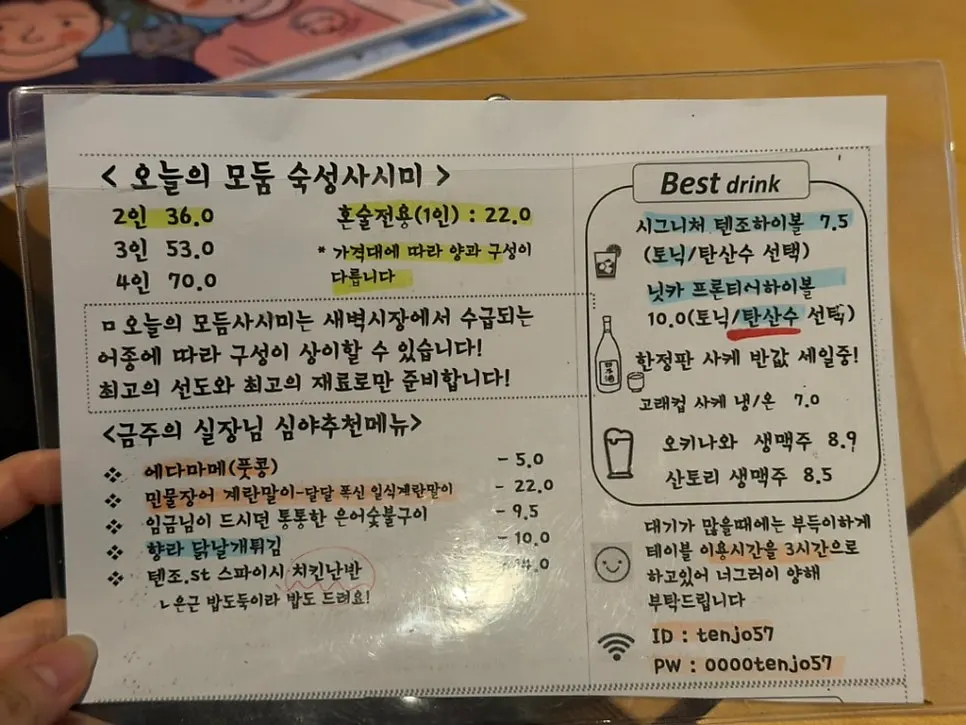 < 오늘의 모둠 숙성사시미 >
2인 36.0
3인 53.0
4인 70.0
혼술전용(1인) : 22.0
* 가격대에 따라 양과 구성이
다릅니다
ㅁ 오늘의 모듬사시미는 새벽시장에서 수급되는
어종에 따라 구성이 상이할 수 있습니다!
최고의 선도와 최고의 재료로만 준비합니다!
<금주의 실장님 심야추천메뉴>
❖ 에다마메(풋콩) - 5.0
❖ 민물장어 계란말이-달달 폭신 일식계란말이 - 22.0
❖ 임금님이 드시던 통통한 은어숯불구이 - 9.5
❖ 향라 닭날개튀김 - 10.0
❖ 텐조.st 스파이시 치킨난반
ㄴ은근 밥도둑이라 밥도 드려요!
Best drink
시그니처 텐조하이볼 7.5
(토닉/탄산수 선택)
닛카 프론티어하이볼
10.0(토닉/탄산수 선택)
한정판 사케 반값 세일중!
고래컵 사케 냉/온 7.0
오키나와 생맥주 8.9
산토리 생맥주 8.5
대기가 많을때에는 부득이하게
테이블 이용시간을 3시간으로
하고있어 너그러이 양해
부탁드립니다
ID : tenjo57
PW : 0000tenjo57